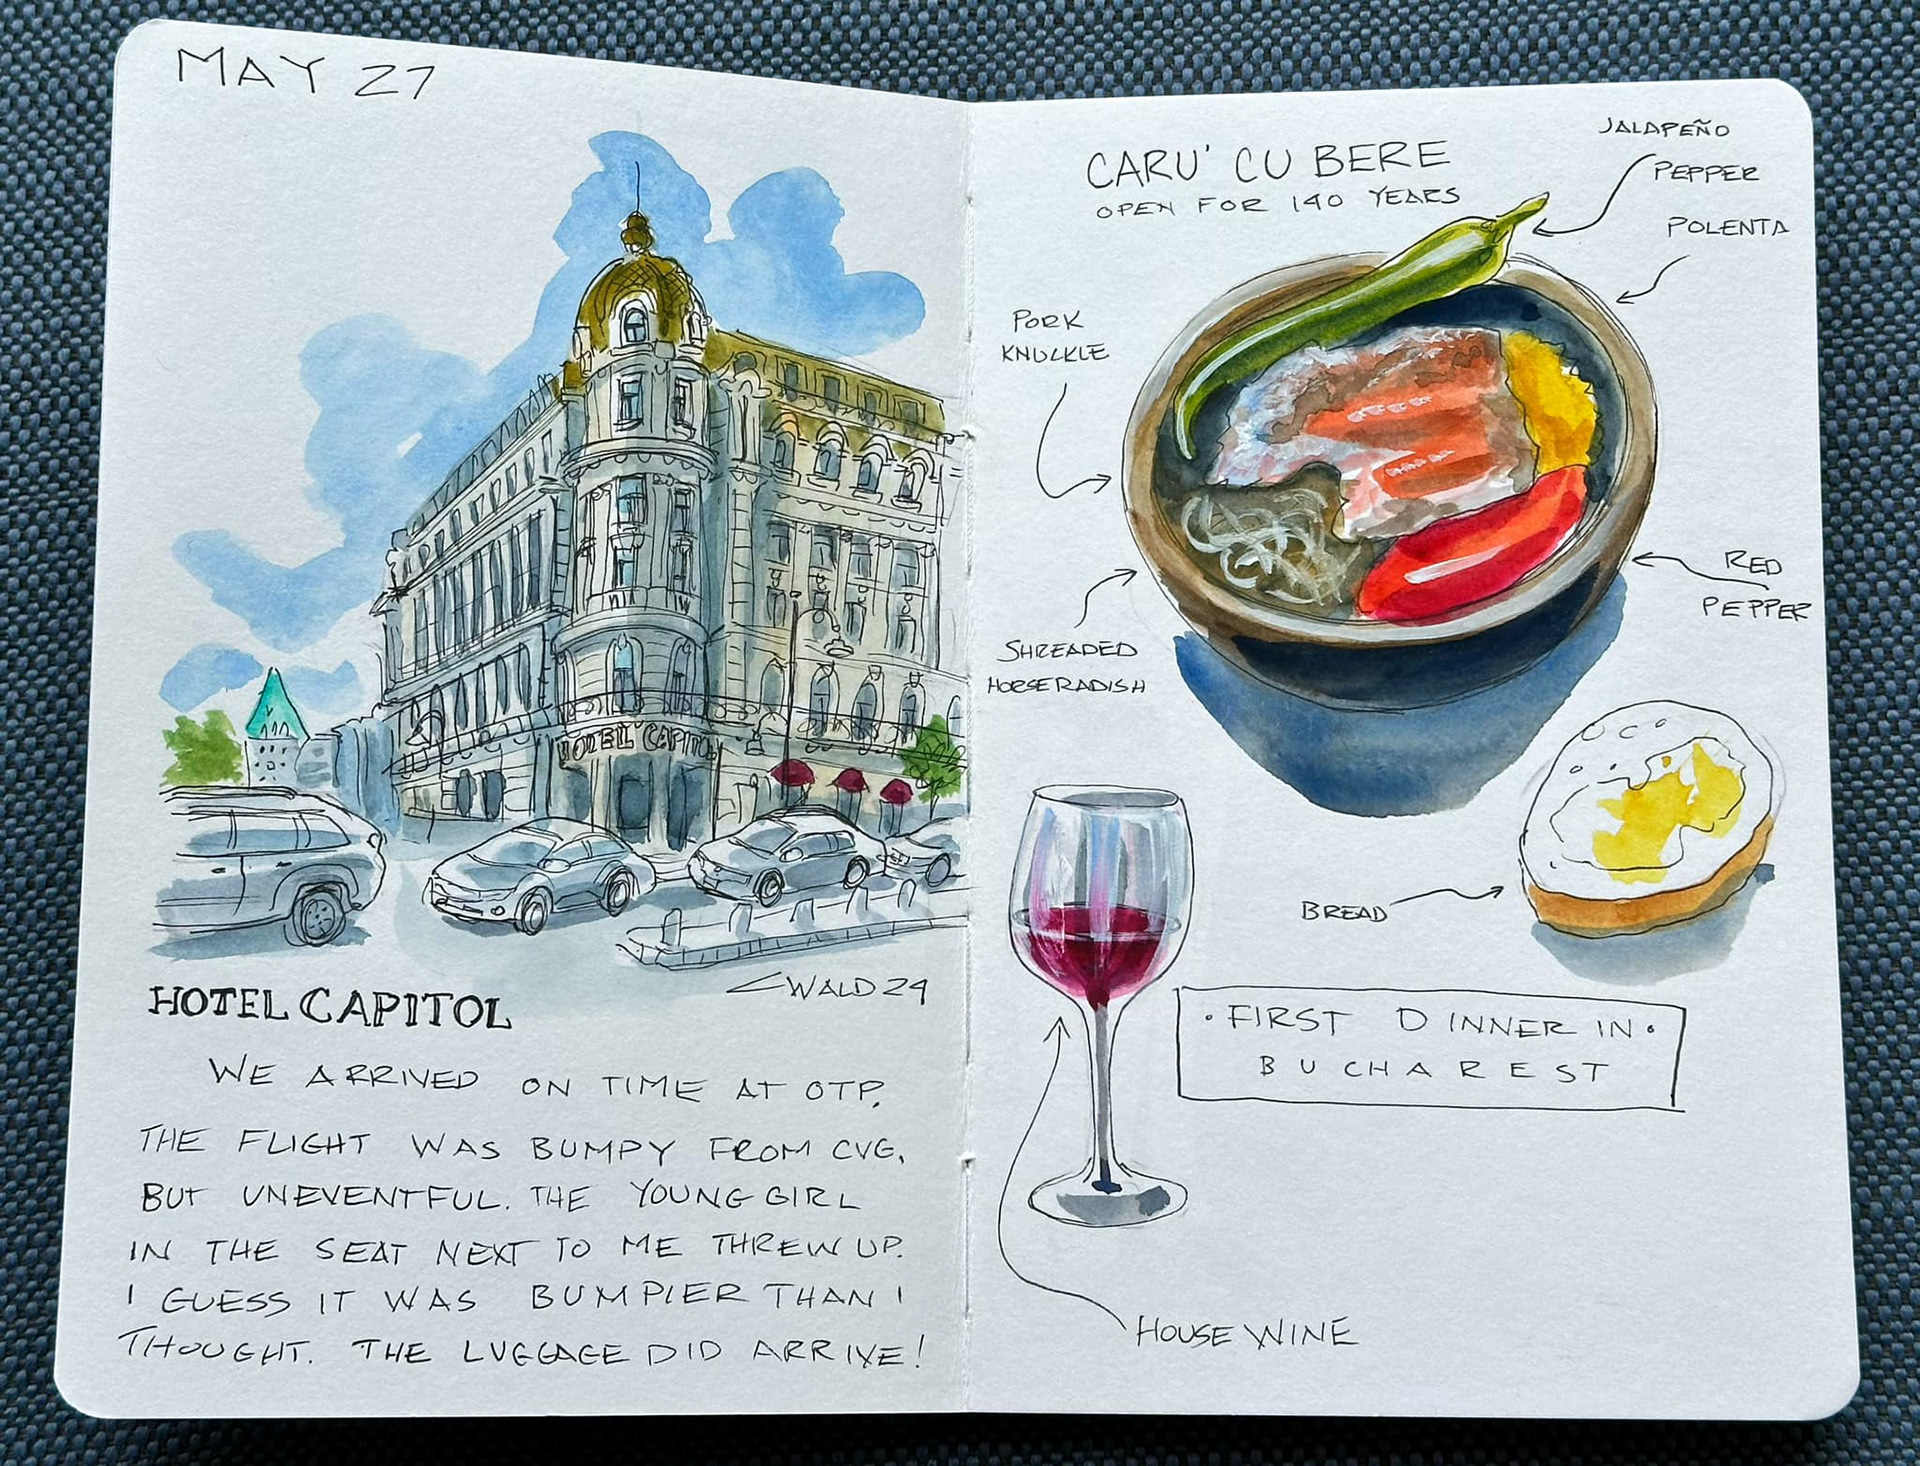 MAY 27
HOTEL CAPITOL
CWALD 24
HOTEL CAPITOL
WE ARRIVED ON TIME AT OTP.
THE FLIGHT WAS BUMPY FROM CVG,
BUT UNEVENTFUL. THE YOUNG GIRL
IN THE SEAT NEXT TO ME THREW UP.
I GUESS IT WAS BUMPIER THAN I
THOUGHT. THE LUGGAGE DID ARRIVE!
CARU' CU BERE
OPEN FOR 140 YEARS
JALAPEÑO
PEPPER
POLENTA
PORK
KNUCKLE
RED
PEPPER
SHREADED
HORSERADISH
BREAD
• FIRST DINNER IN •
BUCHAREST
HOUSE WINE